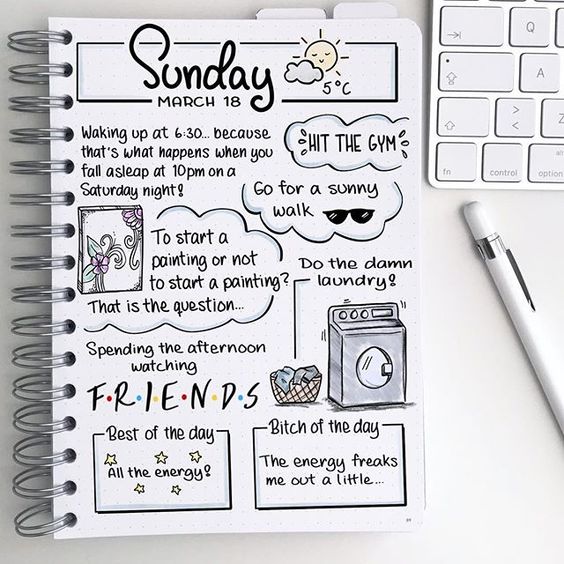 Sunday
MARCH 18
5°C
Waking up at 6:30... because
that's what happens when you
fall asleap at 10pm on a
Saturday night!
HIT THE GYM
Go for a sunny
walk
To start a
painting or not
to start a painting?
That is the question...
Do the damn
laundry!
Spending the afternoon
watching
F•R•I•E•N•D•S
Best of the day
All the energy!
Bitch of the day
The energy freaks
me out a little...
A
Z
fn
control
option